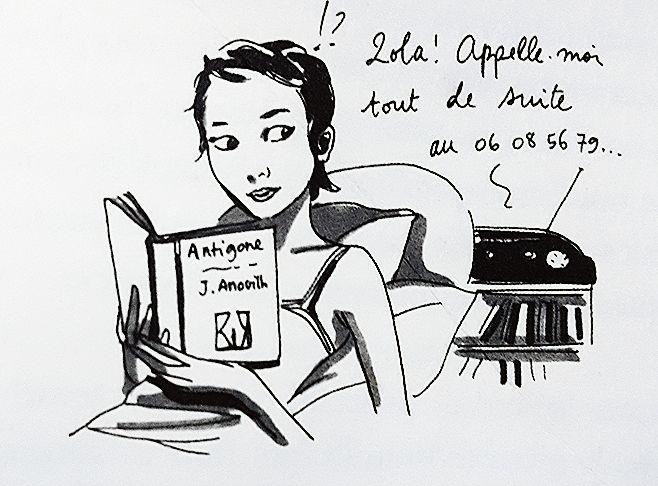 !?
Lola! Appelle-moi
tout de suite
au 06 08 56 79...
Antigone
J. Anouilh